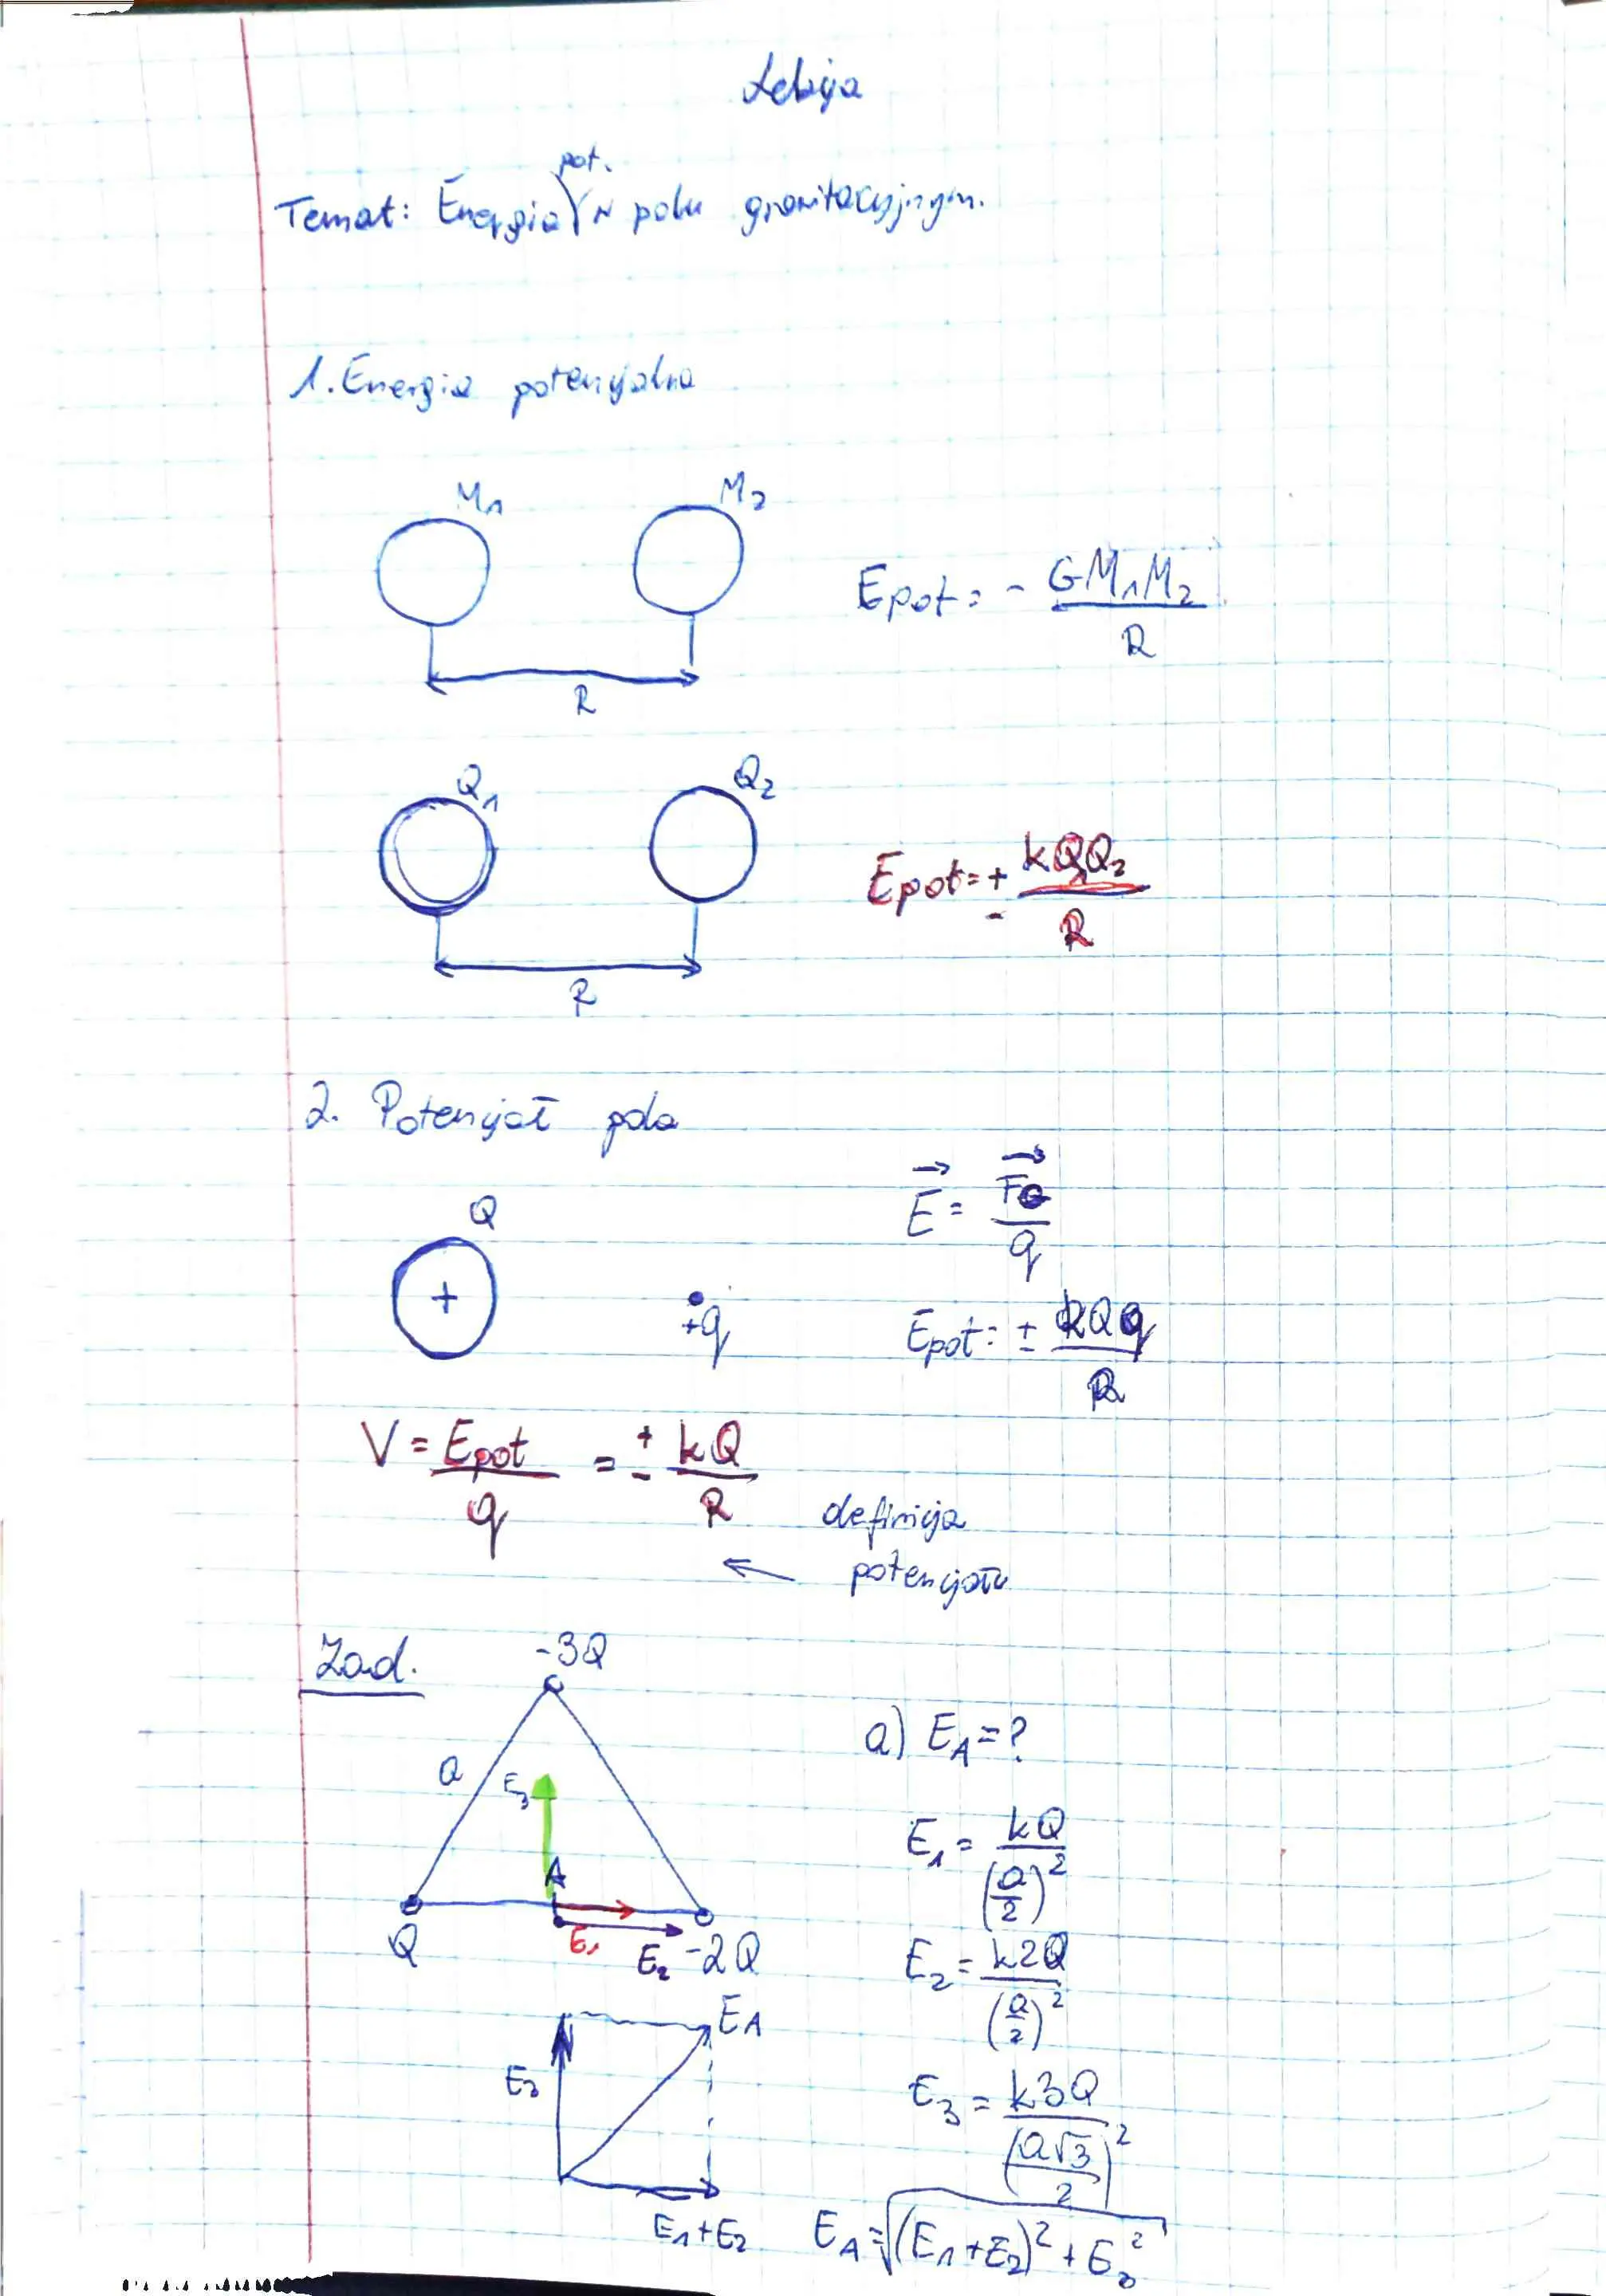 Lekcja
Temat: Energia pot. w polu grawitacyjnym.
1. Energia potencjalna
M₁ M₂
Epot = - GM₁M₂ / R
R
Q₁ Q₂
Epot = ± kQ₁Q₂ / R
R
2. Potencjał pola
E⃗ = F⃗Q / q
Q
+
+q
Epot = ± kQq / R
V = Epot / q = ± kQ / R
definicja
potencjału
Zad.
-3Q
a) E_A = ?
a
E₃
E₁ = kQ / (a/2)²
A
Q E₁ E₂ -2Q
E₂ = k2Q / (a/2)²
E_A
E₃
E₃ = k3Q / (a√3/2)²
E₁+E₂
E_A = √((E₁+E₂)² + E₃²)